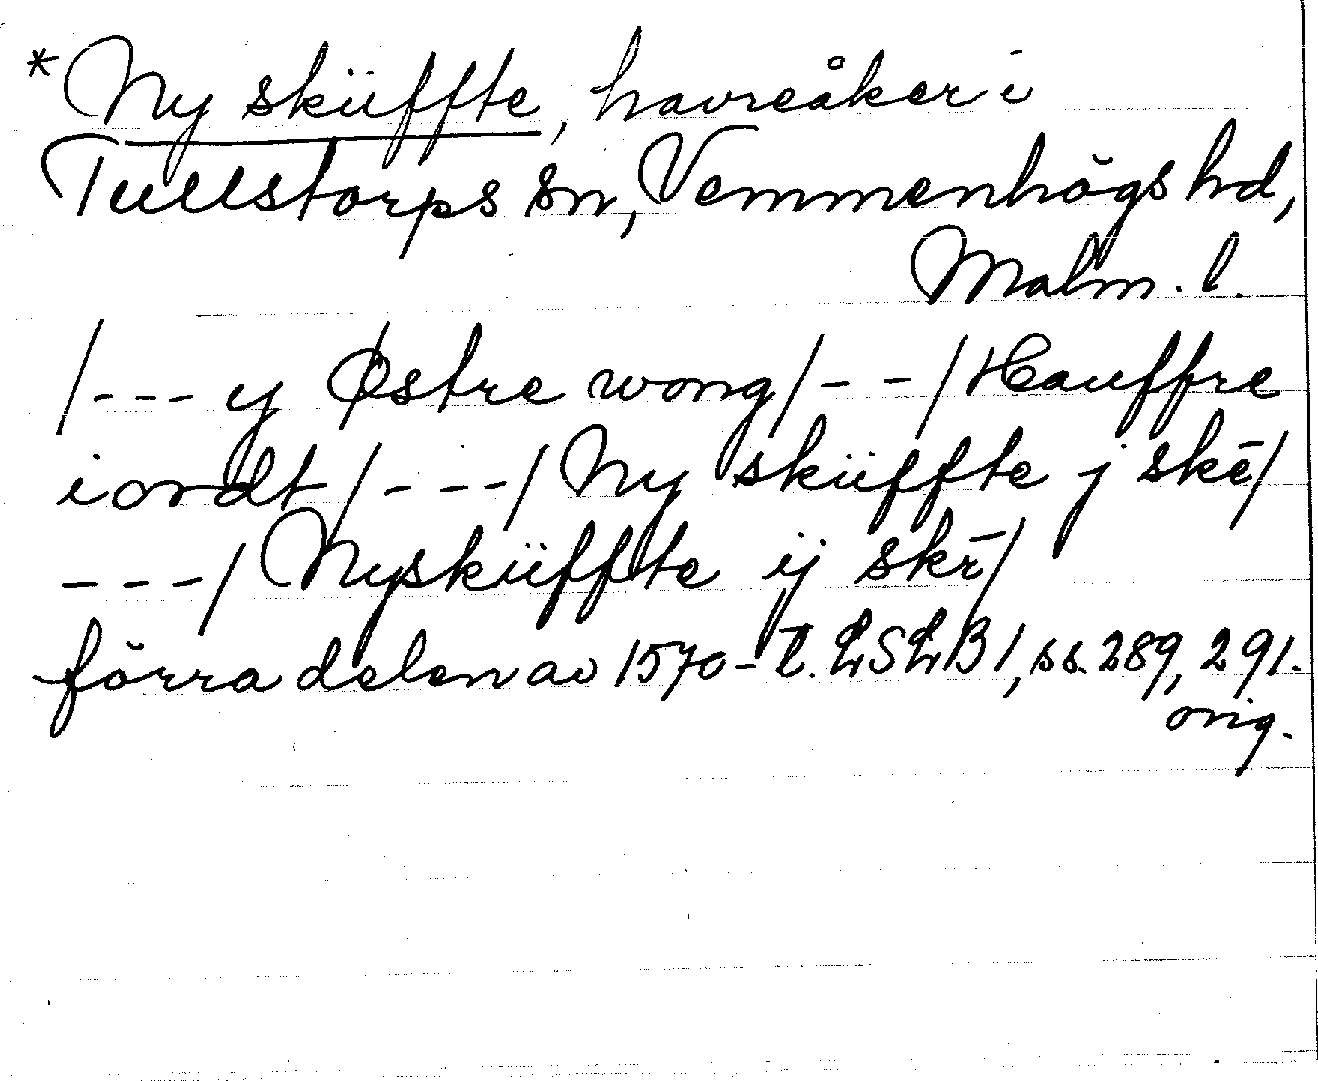 * Ny sküffte, havreåker i
Tullstorps sn, Vemmenhögs hd,
Malm. l.
/--- y Østre wong/--/Hauffre
iordt/---/Ny sküffte j skē/
---/Nysküffte ij skē/
förra delen av 1570-t. LSLB 1, ss. 289, 291.
orig.